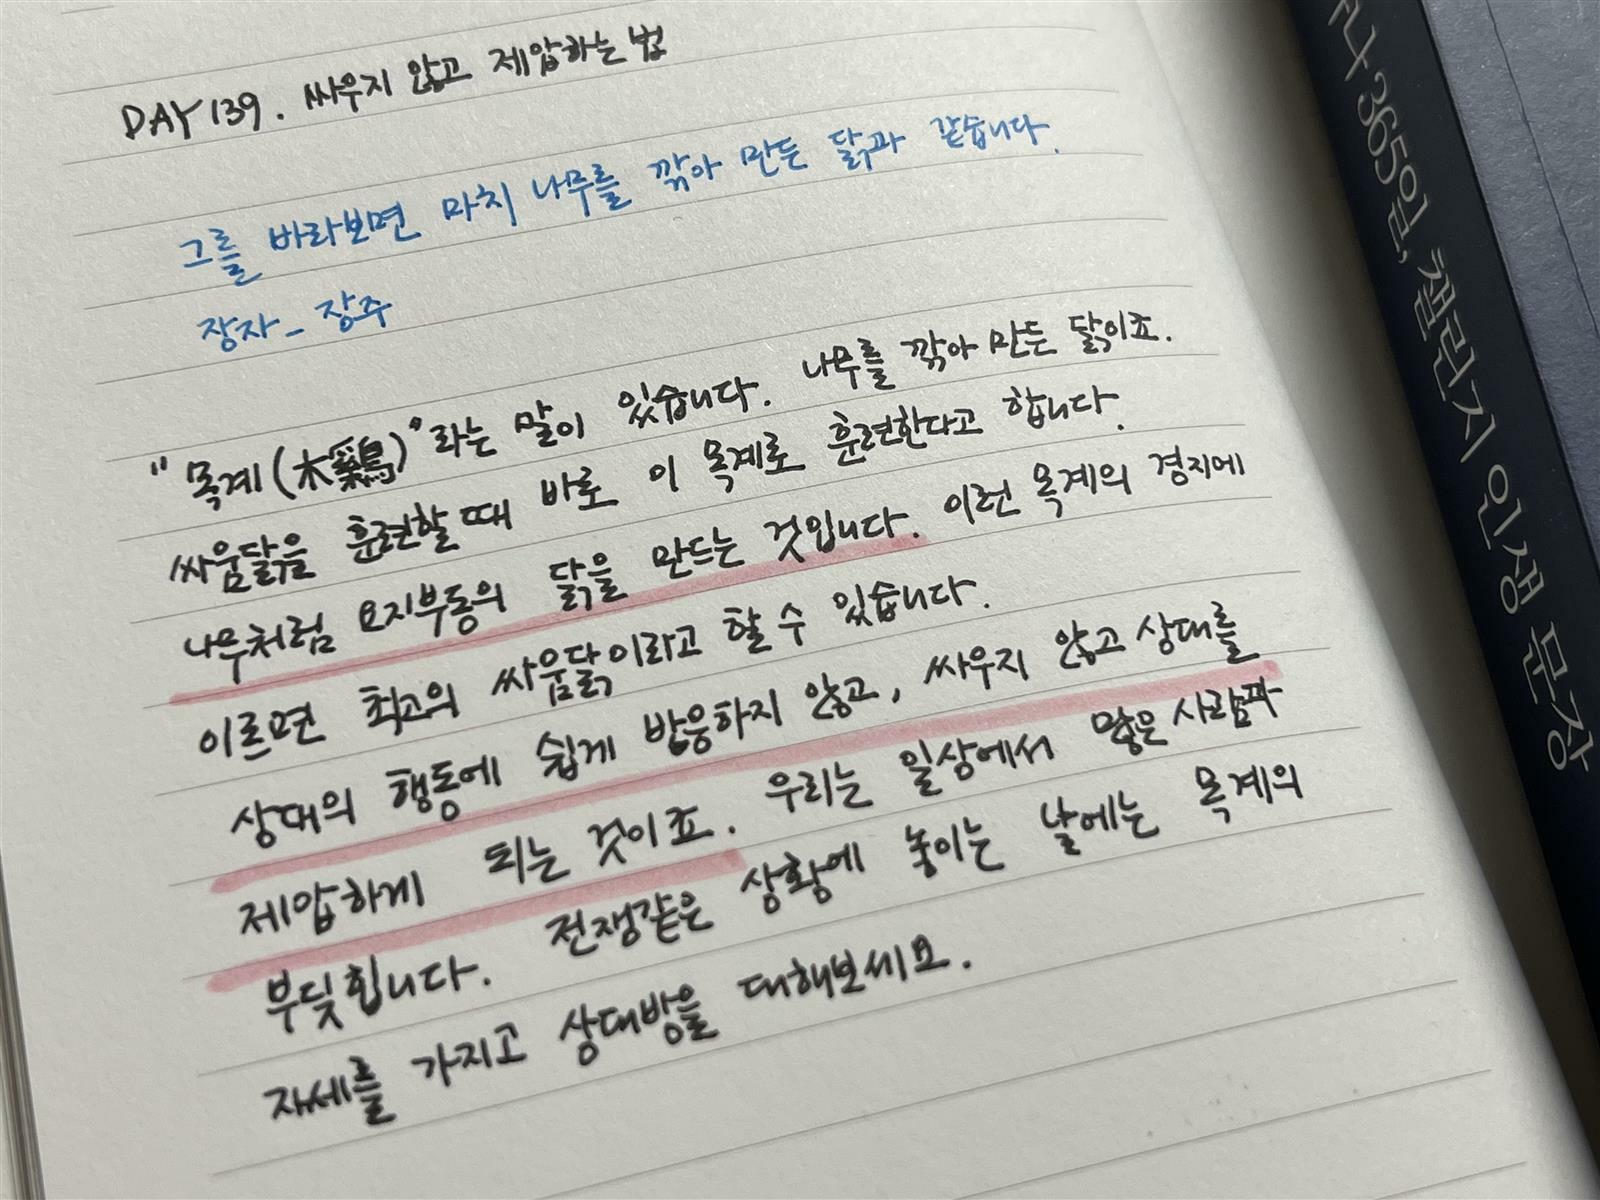 DAY 139. 싸우지 않고 제압하는 법
그를 바라보면 마치 나무를 깎아 만든 닭과 같습니다.
장자_장주
"목계(木鷄)"라는 말이 있습니다. 나무를 깎아 만든 닭이죠.
싸움닭을 훈련할 때 바로 이 목계로 훈련한다고 합니다.
나무처럼 요지부동의 닭을 만드는 것입니다. 이런 목계의 경지에
이르면 최고의 싸움닭이라고 할 수 있습니다.
상대의 행동에 쉽게 반응하지 않고, 싸우지 않고 상대를
제압하게 되는 것이죠. 우리는 일상에서 많은 사람과
부딪힙니다. 전쟁같은 상황에 놓이는 날에는 목계의
자세를 가지고 상대방을 대해보세요.
365일, 챌린지 인생 문장